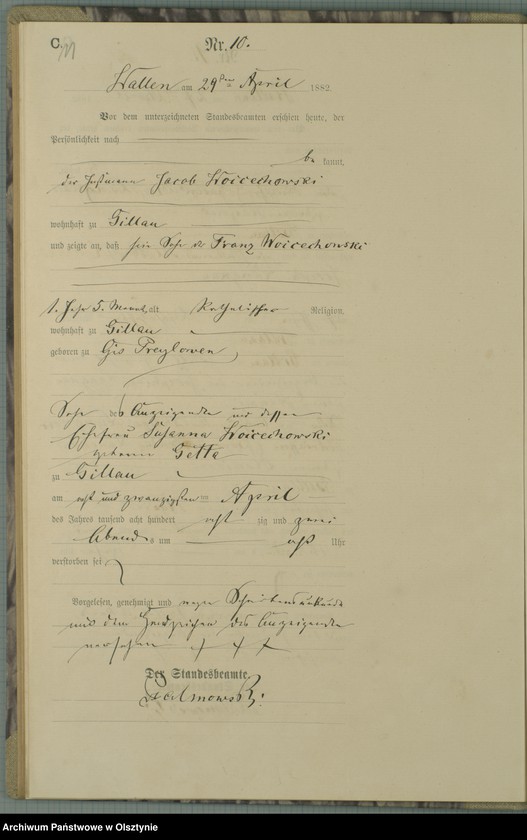 C.
Nr. 10.
Wallen am 29ten April 1882
Vor dem unterzeichneten Standesbeamten erschien heute, der
Persönlichkeit nach
be kannt,
der Instmann Jacob Woicechowski
wohnhaft zu Gillau
und zeigte an, daß sein Sohn der Franz Woicechowski
1. Jahr 5. Monat, alt Katholischer Religion,
wohnhaft zu Gillau
geboren zu Preylowen
Sohn des Anzeigenden und dessen
Ehefrau Susanna Woicechowski
geborene
zu Gillau
am acht und zwanzigsten ten April
des Jahres tausend acht hundert acht zig und zwei
Abends um acht Uhr
verstorben sei
Vorgelesen, genehmigt und wegen Schreibensunkunde
mit dem Handzeichen des Anzeigenden
versehen + + +
Der Standesbeamte.
Archiwum Państwowe w Olsztynie